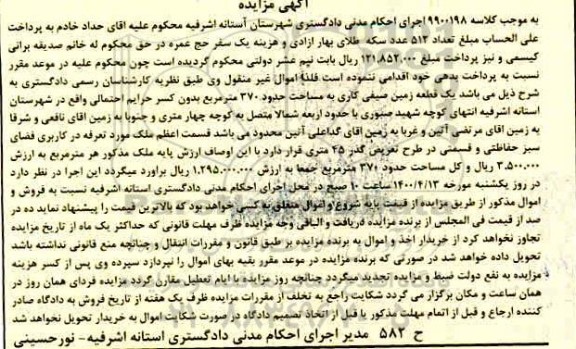 آگهی مزایده
به موجب کلاسه ۹۹۰۰۱۹۸ اجرای احکام مدنی دادگستری شهرستان آستانه اشرفیه محکوم علیه اقای حداد خادم به پرداخت
علی الحساب مبلغ تعداد ۵۱۳ عدد سکه طلای بهار ازادی و هزینه یک سفر حج عمره در حق محکوم له خانم صدیقه براتی
کیسمی و نیز پرداخت مبلغ ۱۲۱،۸۵۲،۰۰۰ ریال بابت نیم عشر دولتی محکوم گردیده است چون محکوم علیه در موعد مقرر
نسبت به پرداخت بدهی خود اقدامی ننموده است فلذا اموال غیر منقول وی طبق نظریه کارشناسان رسمی دادگستری به
شرح ذیل می باشد یک قطعه زمین صیفی کاری به مساحت حدود ۳۷۰ مترمربع بدون کسر حرایم احتمالی واقع در شهرستان
استانه اشرفیه انتهای کوچه شهید صبوری با حدود اربعه شمالا متصل به کوچه چهار متری و جنوبا به زمین اقای نافعی و شرقا
به زمین اقای مرتضی آئین و غربا به زمین اقای گداعلی آئین محدود می باشد قسمت اعظم ملک مورد تعرفه در کاربری فضای
سبز حفاظتی و قسمتی در طرح تعریض گذر ۴۵ متری قرار دارد با این اوصاف ارزش پایه ملک مذکور هر مترمربع به ارزش
۳.۵۰۰.۰۰۰ ریال و کل مساحت حدود ۳۷۰ مترمربع جمعا به ارزش ۱.۲۹۵.۰۰۰.۰۰۰ ریال براورد میگردد این اجرا در نظر دارد
در روز یکشنبه مورخه ۱۴۰۰/۴/۱۳ ساعت ۱۰ صبح در محل اجرای احکام مدنی دادگستری استانه اشرفیه نسبت به فروش و
اموال مذکور از طریق مزایده از قیمت پایه شروع و اموال متعلق به کسی خواهد بود که بالاترین قیمت را پیشنهاد نماید ده در
صد از قیمت فی المجلس از برنده مزایده دریافت و الباقی وجه مزایده ظرف مهلت قانونی که حداکثر یک ماه از تاریخ مزایده
تجاوز نخواهد کرد از خریدار اخذ و اموال به برنده مزایده بر طبق قانون و مقررات انتقال و چنانچه منع قانونی نداشته باشد
تحویل داده خواهد شد در صورتی که برنده مزایده در موعد مقرر بقیه بهای اموال را نپردازد سپرده وی پس از کسر هزینه
مزایده به نفع دولت ضبط و مزایده تجدید میگردد چنانچه روز مزایده با ایام تعطیل مقارن گردد مزایده فردای همان روز در
همان ساعت و مکان برگزار می گردد شکایت راجع به تخلف از مقررات مزایده ظرف یک هفته از تاریخ فروش به دادگاه صادر
کننده ارجاع و قبل از اتمام مهلت مذکور یا قبل از اتخاذ تصمیم دادگاه در صورت شکایت اموال به خریدار تحویل نخواهد شد
ح ۵۸۲ مدیر اجرای احکام مدنی دادگستری استانه اشرفیه - نورحسینی